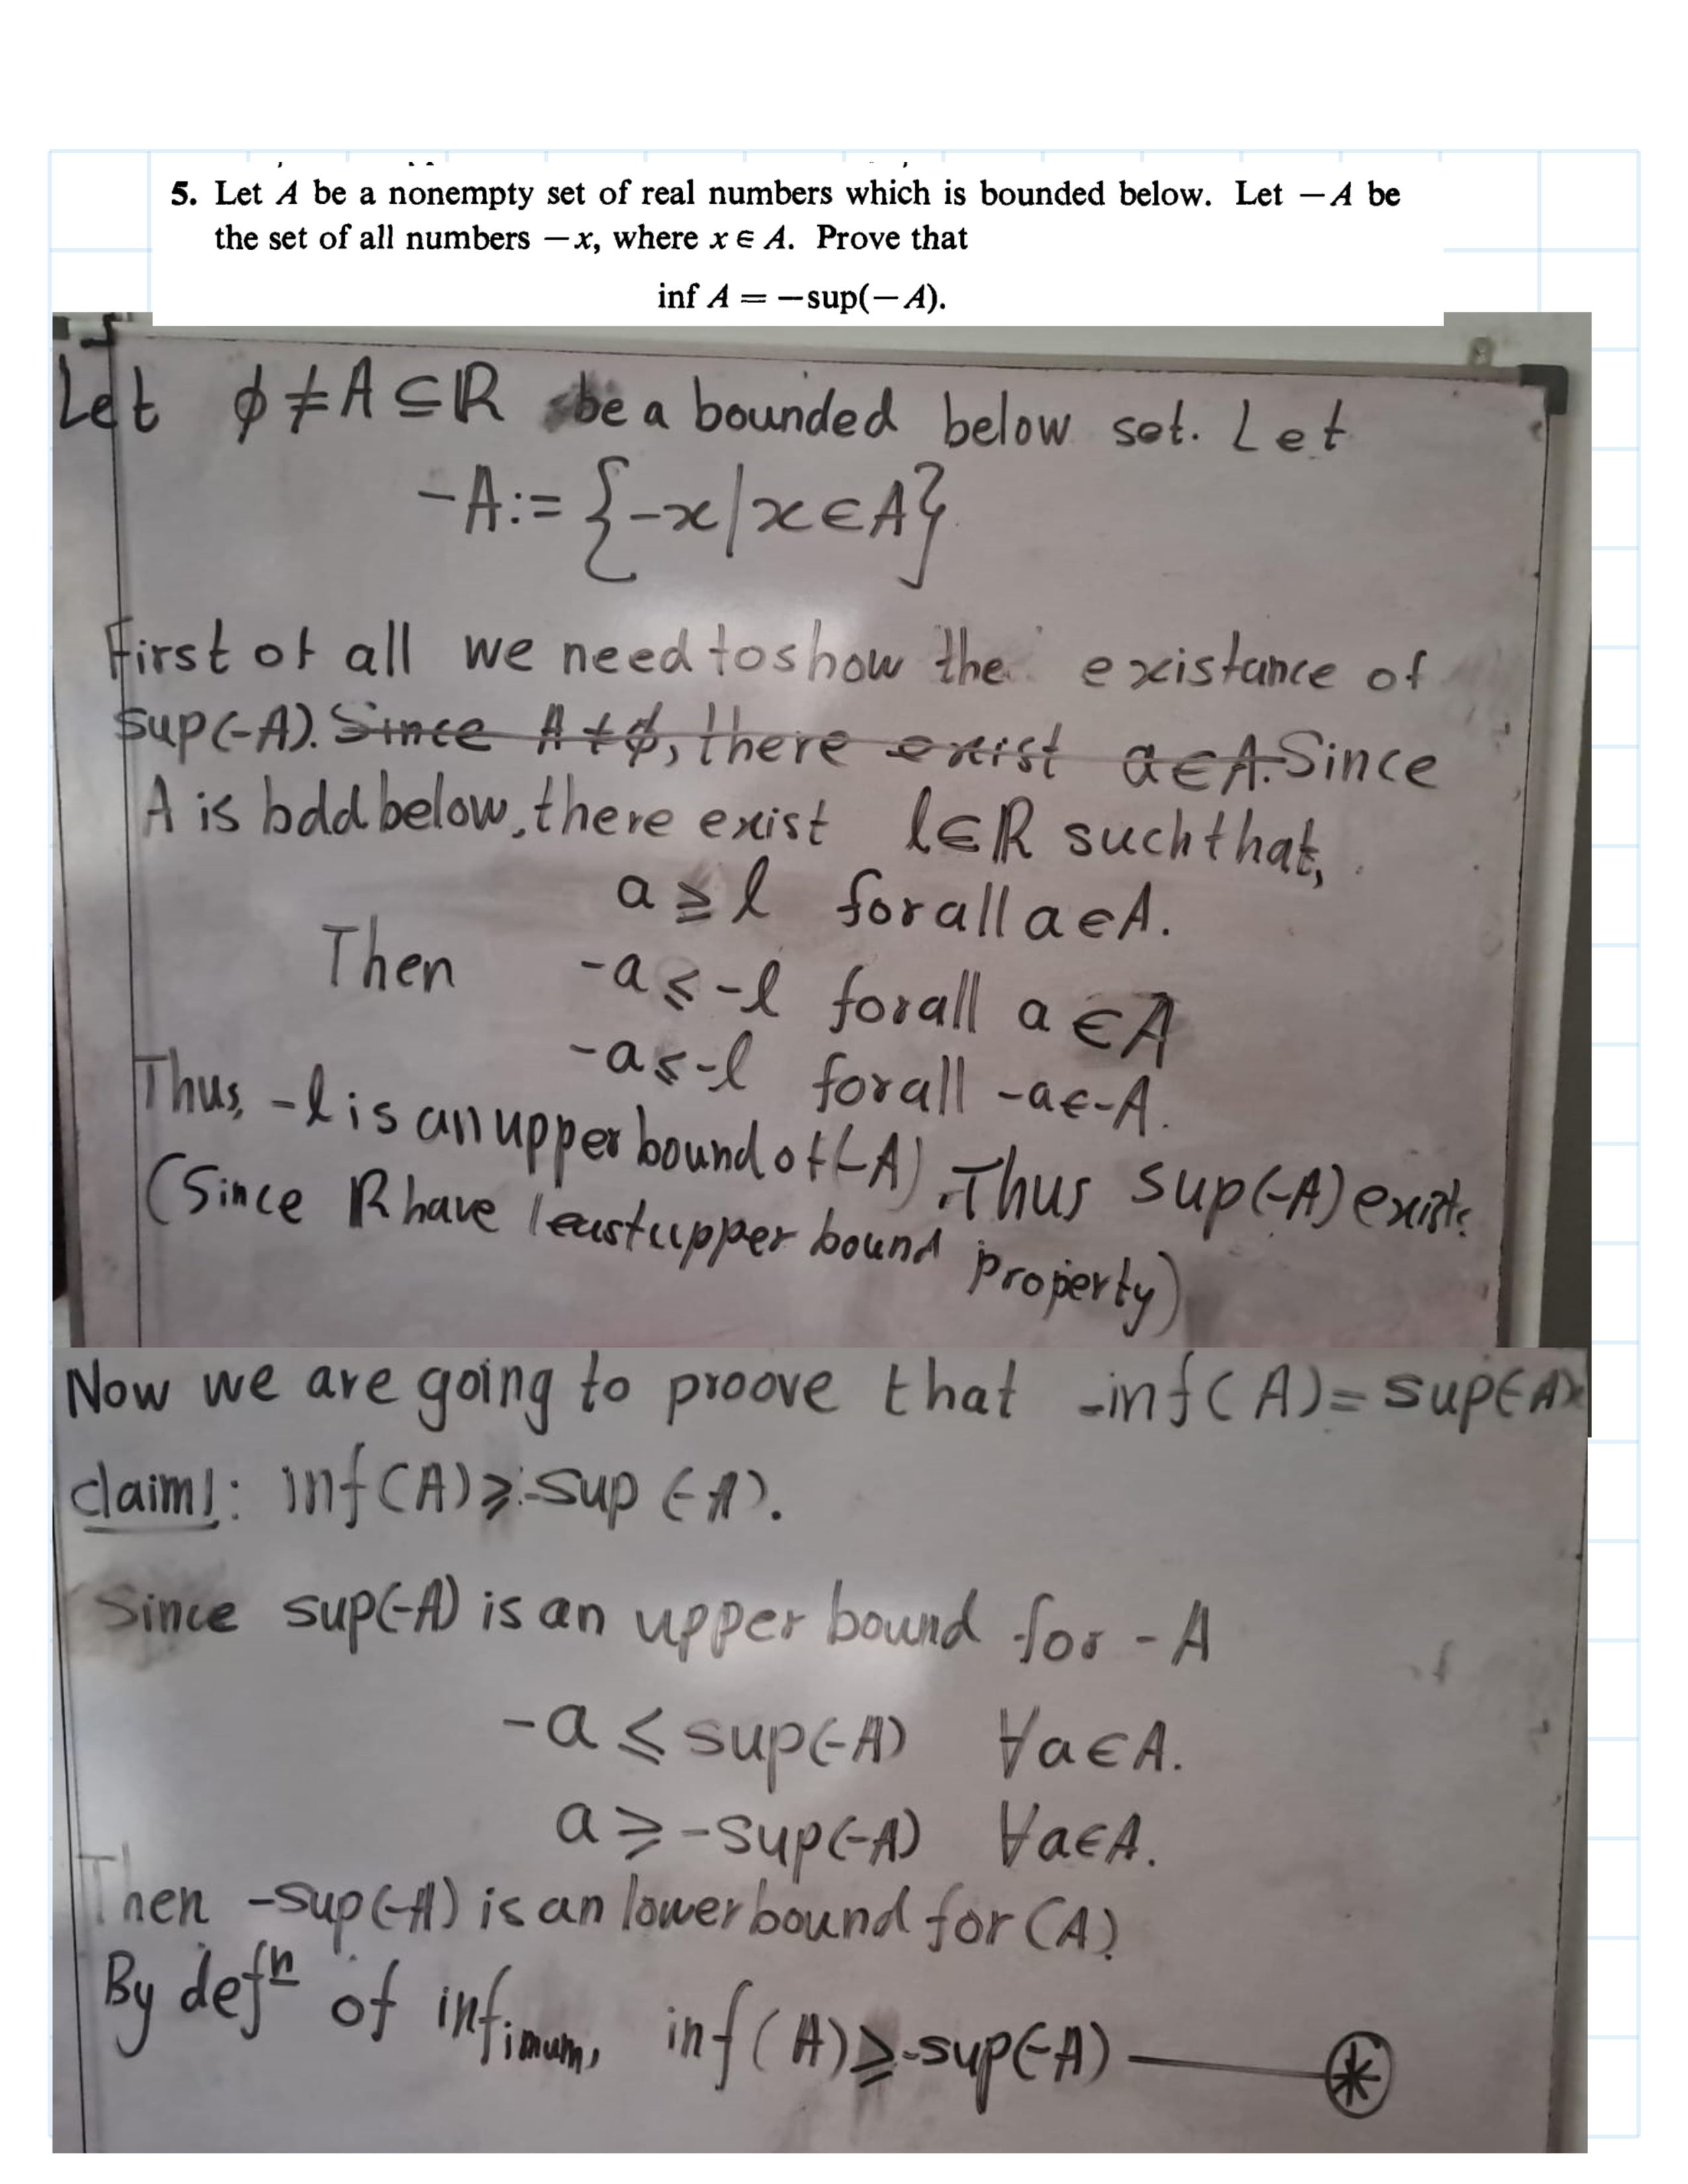 5. Let A be a nonempty set of real numbers which is bounded below. Let −A be
the set of all numbers −x, where x ∈ A. Prove that
inf A = −sup(−A).
Let ϕ ≠ A ⊆ ℝ be a bounded below set. Let
-A := {-x | x ∈ A}
First of all we need to show the existance of
sup(-A). Since A ≠ ϕ, there exist a ∈ A. Since
A is bdd below, there exist l ∈ ℝ such that,
a ≥ l for all a ∈ A.
Then -a ≤ -l for all a ∈ A
-a ≤ -l for all -a ∈ -A.
Thus, -l is an upper bound of (-A). Thus sup(-A) exists
(Since ℝ have least upper bound property)
Now we are going to proove that -inf(A) = sup(-A)
claim 1: inf(A) ≥ -sup(-A).
Since sup(-A) is an upper bound for -A
-a ≤ sup(-A) ∀a ∈ A.
a ≥ -sup(-A) ∀a ∈ A.
Then -sup(-A) is an lower bound for (A).
By defⁿ of infimum, inf(A) ≥ -sup(-A) — ⊛